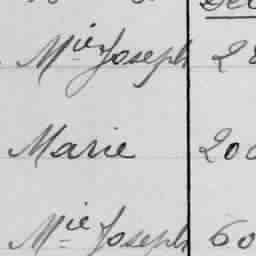 Mie Joseph 2
Marie 200
Mie Joseph 60